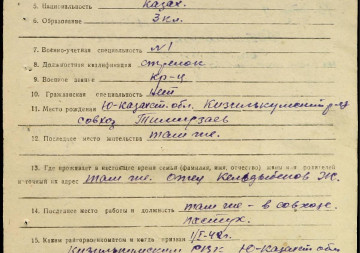 5. Национальность казах.
6. Образование 3 кл.
7. Военно-учетная специальность №1
8. Должностная квалификация стрелок
9. Воинское звание кр-ц
10. Гражданская специальность нет
11. Место рождения Ю-Казахст. обл. Кизилькумский р-н
совхоз Тимирзаев
12. Последнее место жительства там же.
13. Где проживает в настоящее время семья (фамилия, имя, отчество) жены или родителей
и точный их адрес там же. Отец Ж.
14. Последнее место работы и должность там же - в совхозе
пастух.
15. Каким райгорвоенкоматом и когда призван 1/I-42г.
Кизилькумским РВК Ю-Казахст обл